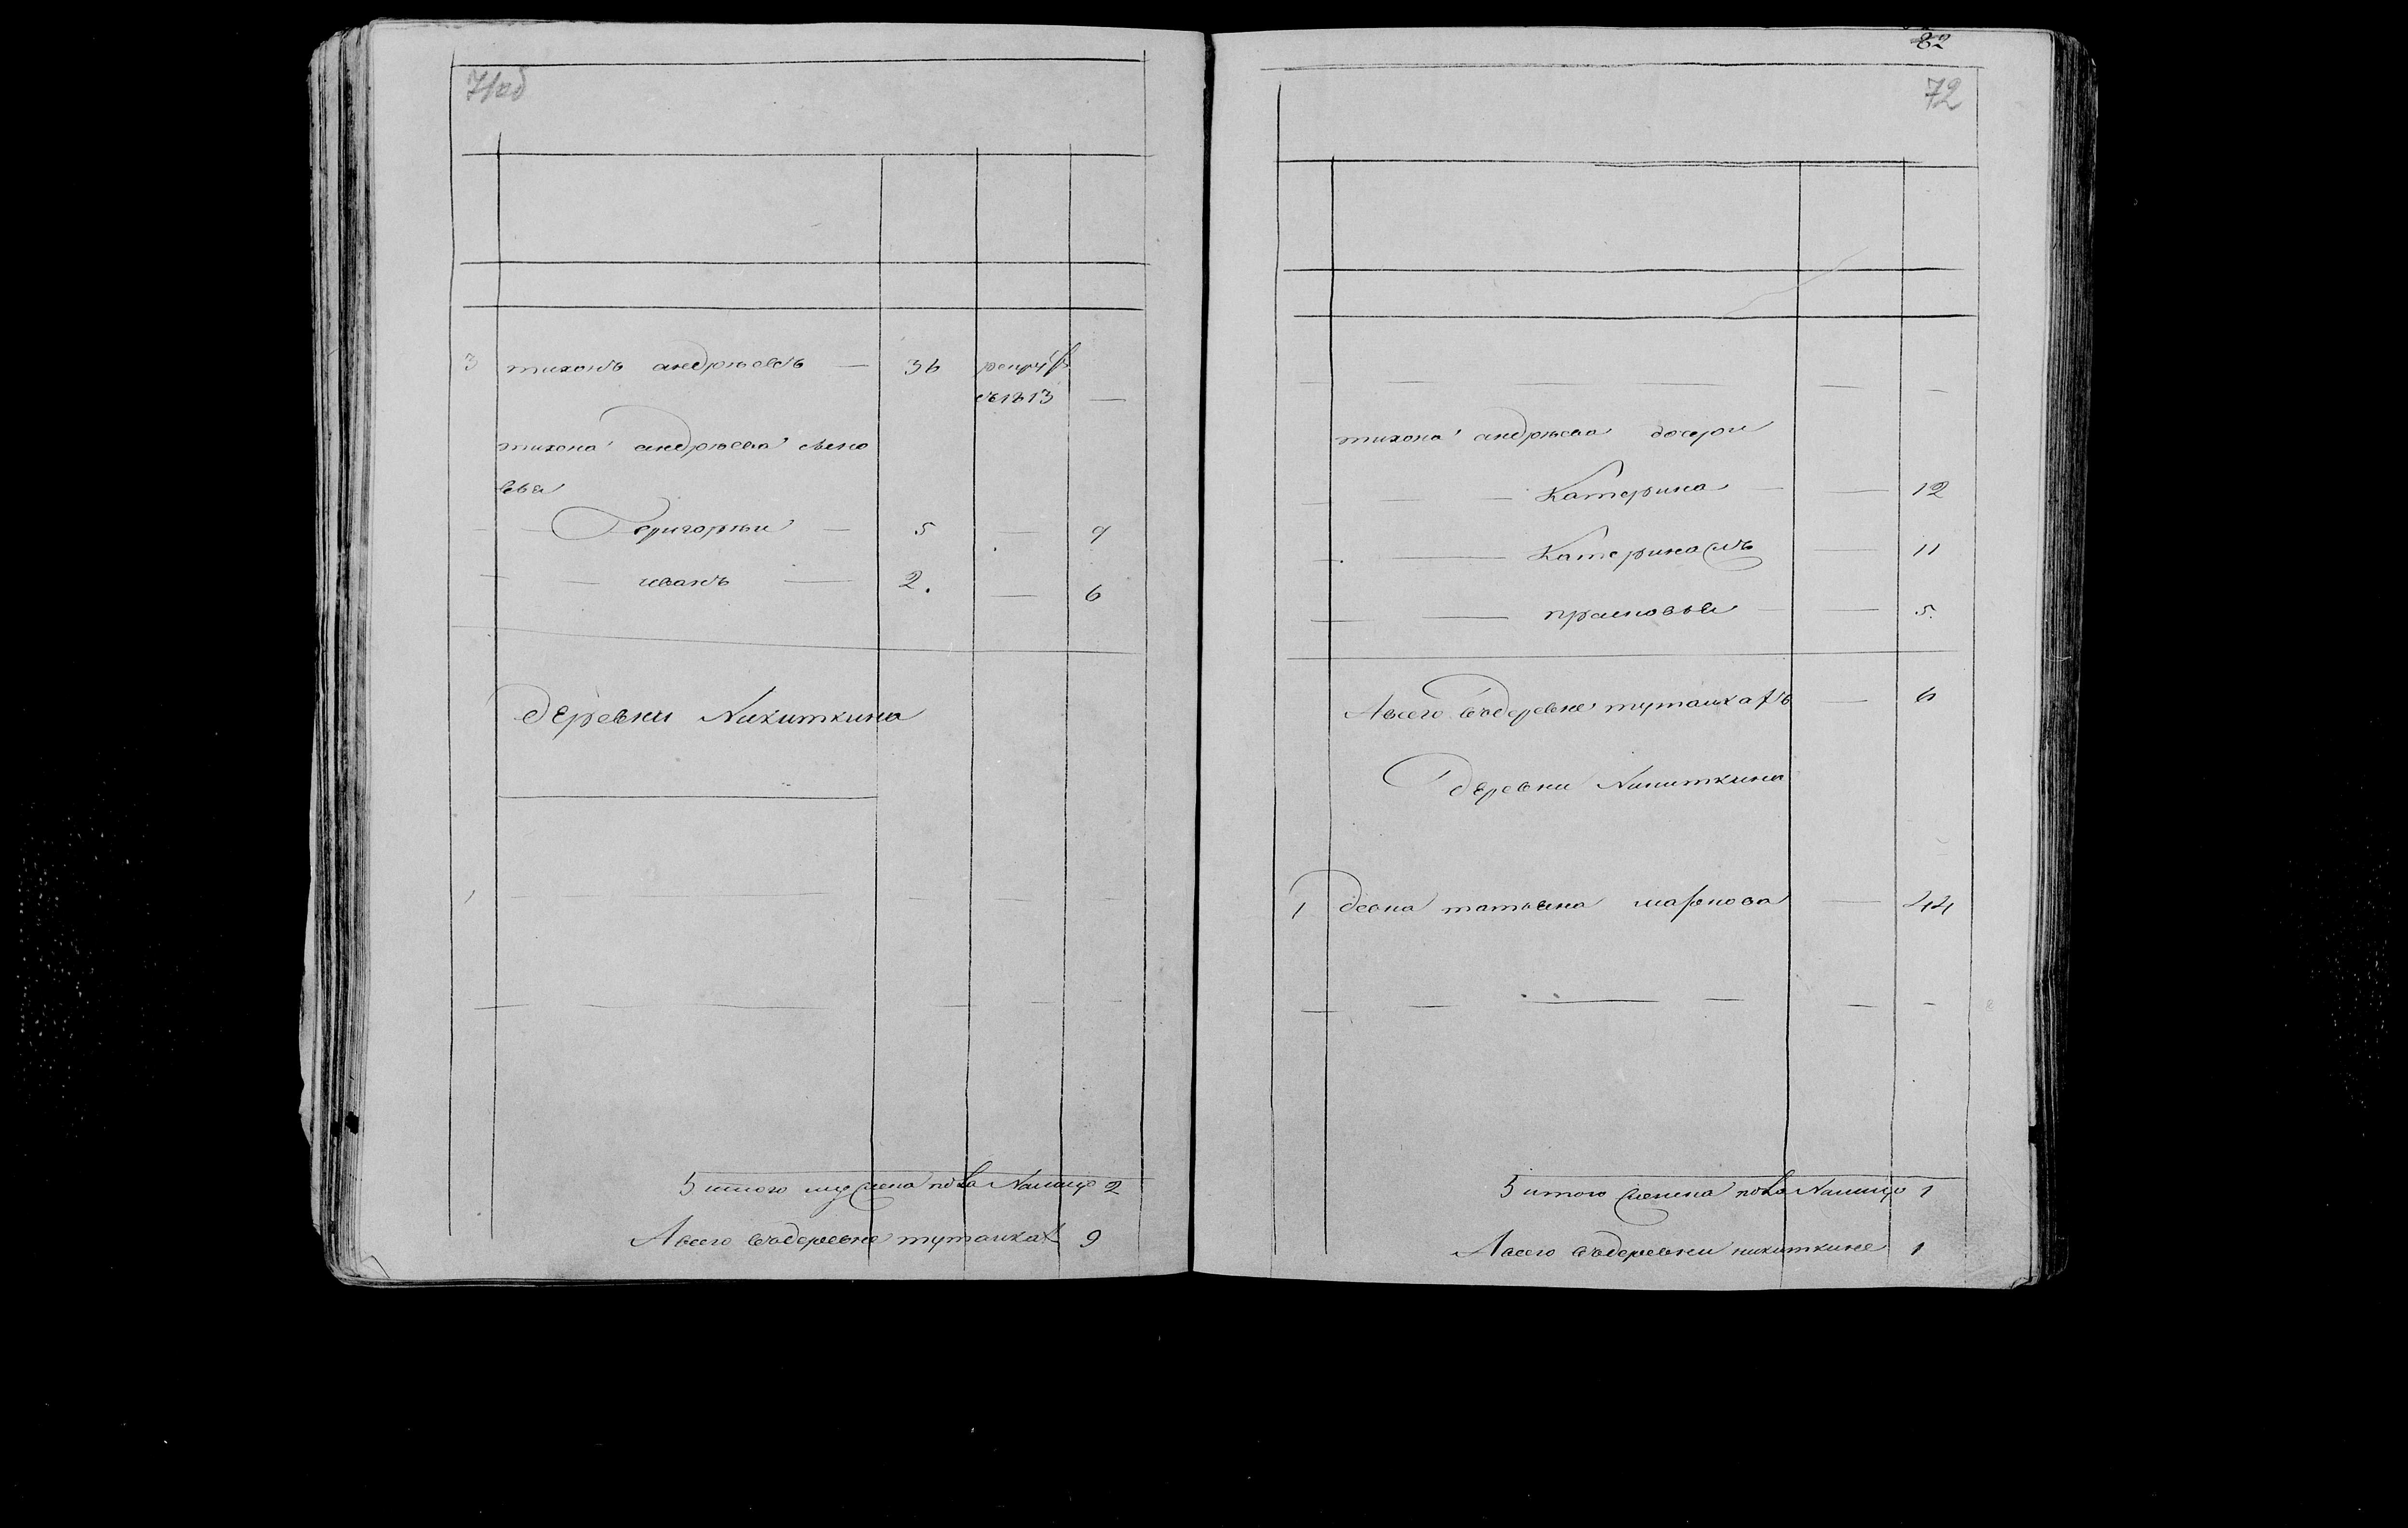 71об
3 тихонъ андрѣевъ — 36 рекру
въ 1813 —
тихона андрѣева сыно
вья
Григорѣи — 5 — 9
иванъ — 2. — 6
деревни Никиткина
1 — — — —
5 итого мужеска пола Налицо 2
Авсего въдеревне тутаихахъ 9
82
72
тихона андрѣева дочери
Катерина — — 12
Катерина — 11
прасковья — — 5.
Авсего въдеревне тутаихахъ — 6
деревни Никиткина
1 девка татьяна маркова — 44
5 итого женска пола Налицо 1
Авсего въдеревни никиткине 1